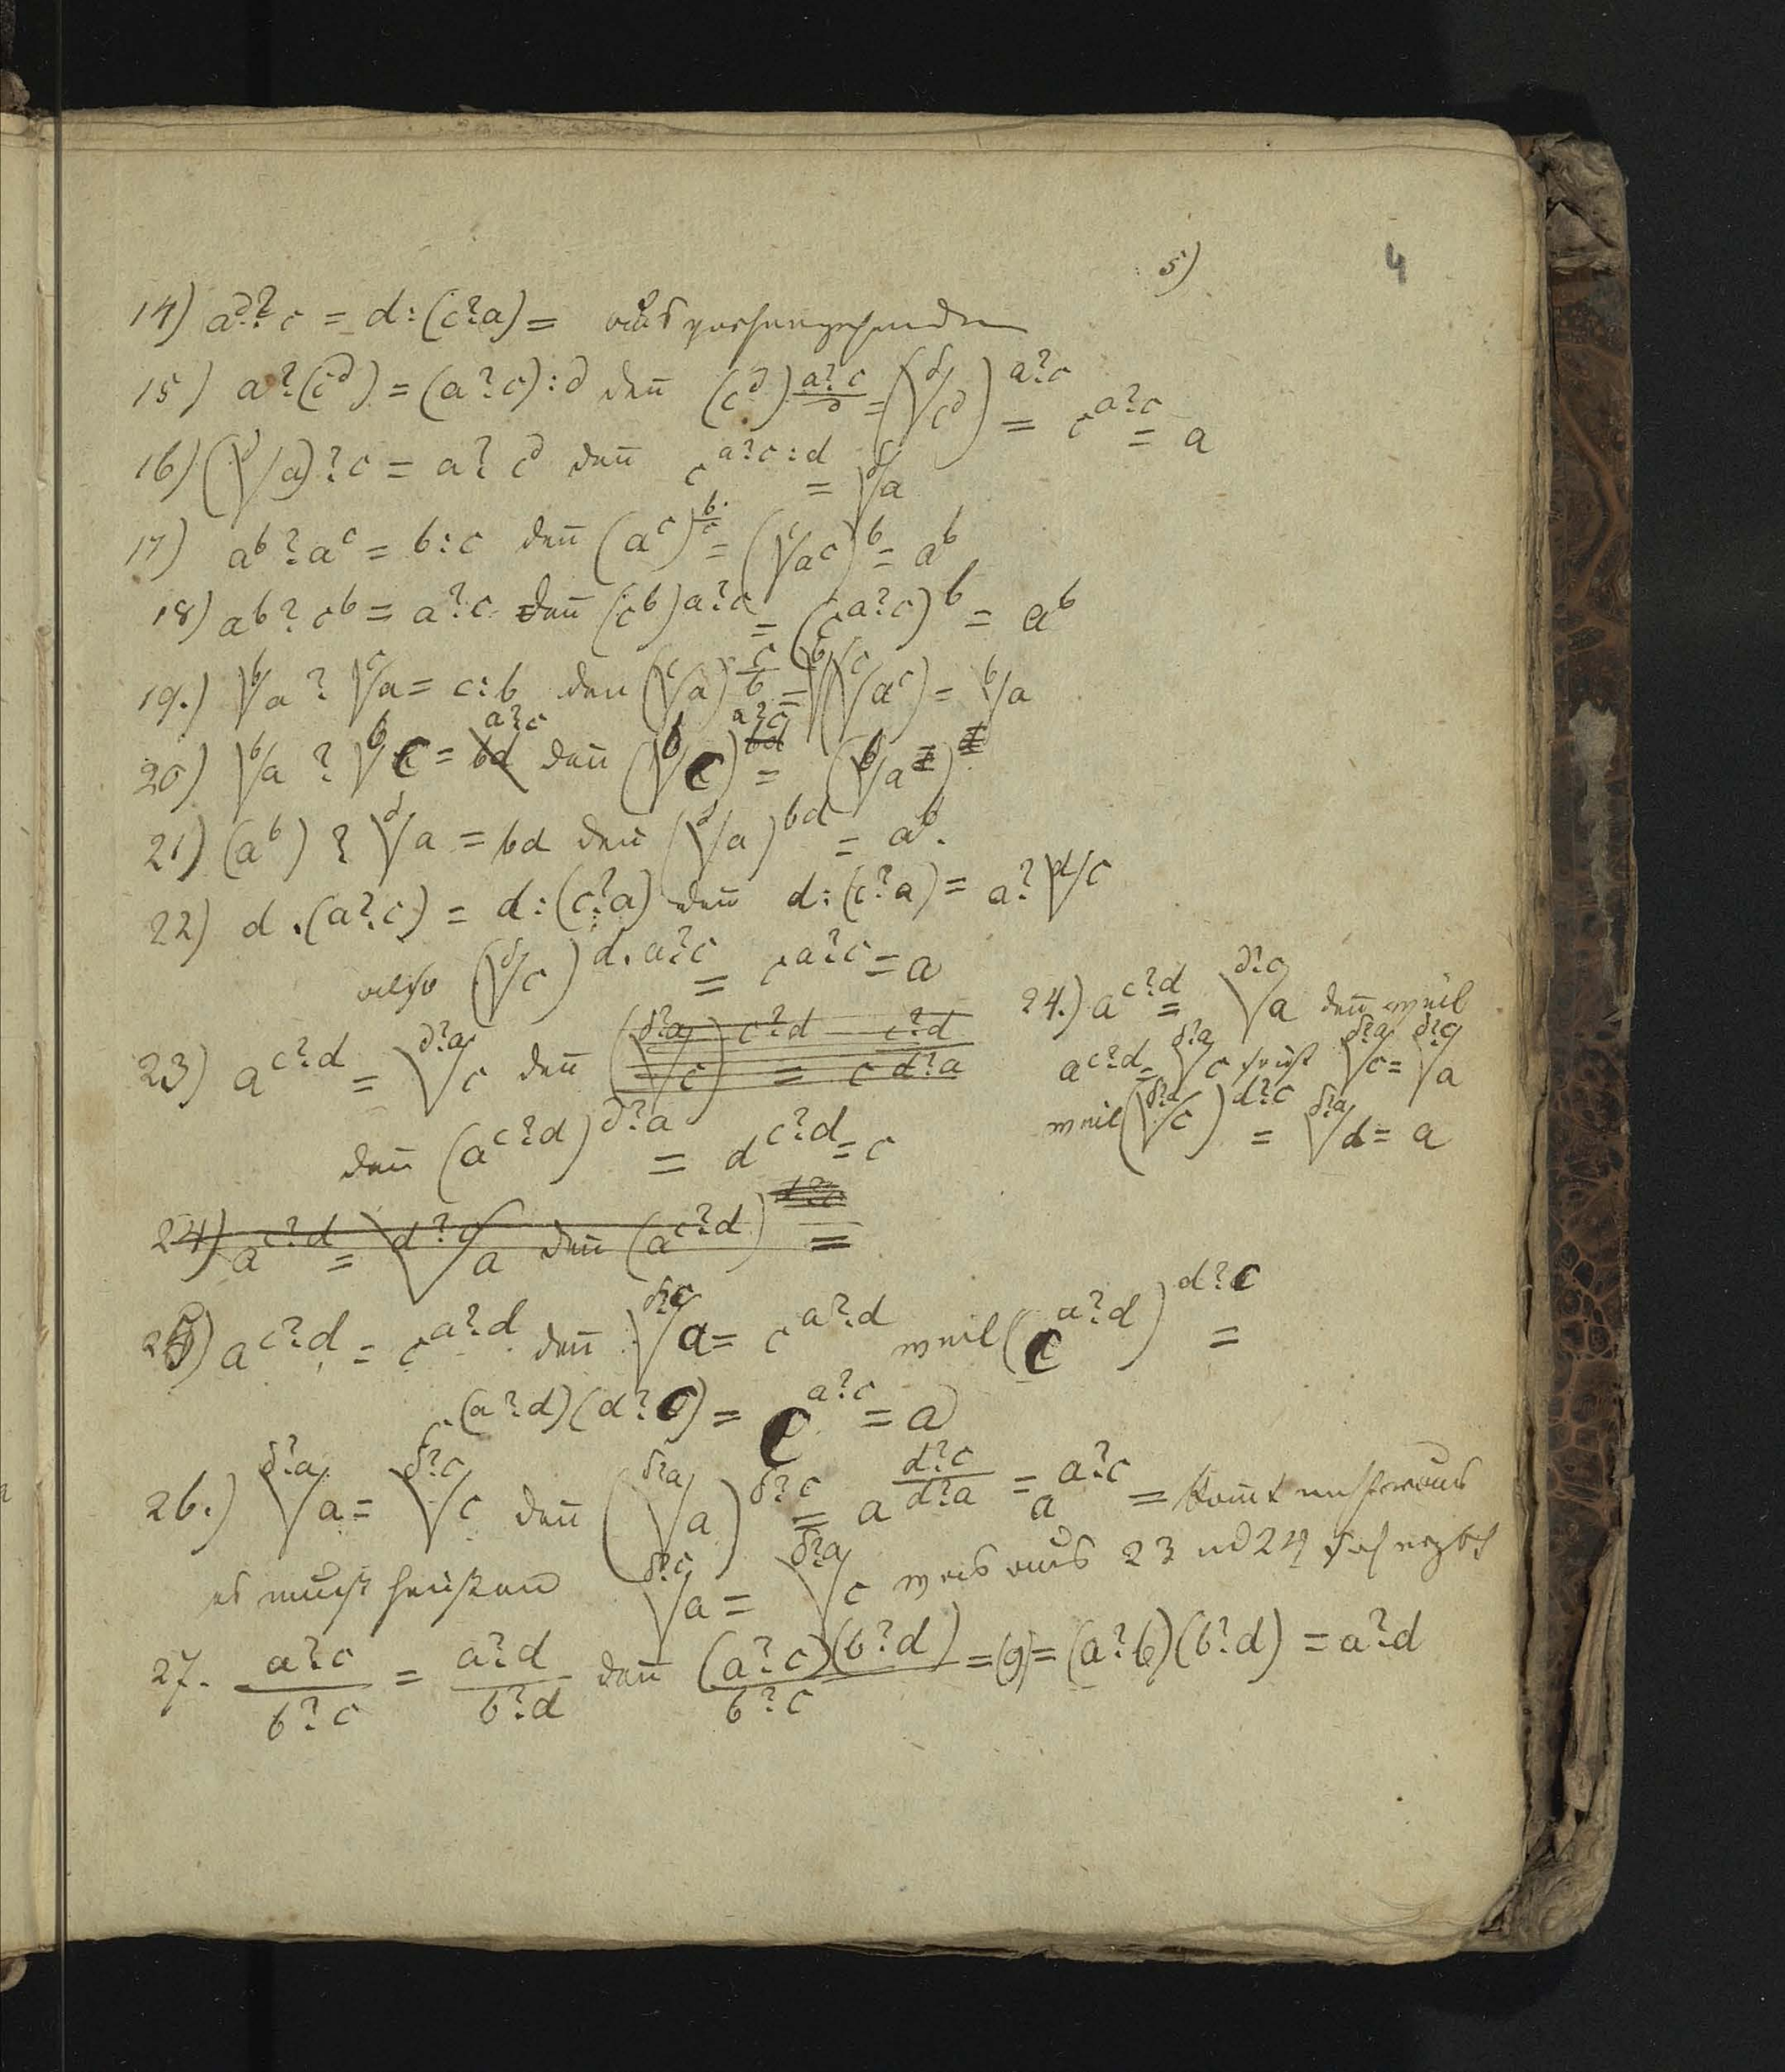 5) 4
14) a^d ? c = d : (c?a) = aus vorhergehendem
15) a?(c^d) = (a?c):d deñ (c^d)^{\frac{a?c}{d}} = (\sqrt[d]{c^d})^{a?c} = c^{a?c} = a
16) (\sqrt[d]{a})?c = a?c^d deñ c^{a?c:d} = \sqrt[d]{a}
17) a^b?a^c = b:c deñ (a^c)^{\frac{b}{c}} = (\sqrt[c]{a^c})^b = a^b
18) a^b?c^b = a?c deñ (c^b)^{a?c} = (c^{a?c})^b = a^b
19.) \sqrt[b]{a} ? \sqrt[c]{a} = c:b den (\sqrt[c]{a})^{\frac{c}{b}} = \sqrt[b]{(\sqrt[c]{a^c})} = \sqrt[b]{a}
20) \sqrt[b]{a} ? \sqrt[b]{c} = a?c deñ (\sqrt[b]{c})^{a?c} = (\sqrt[b]{a})
21) (a^b) ? \sqrt[d]{a} = bd deñ (\sqrt[d]{a})^{bd} = a^b.
22) d.(a?c) = d:(c?a) deñ d:(c?a) = a?\sqrt[d]{c}
also (\sqrt[d]{c})^{d.a?c} = c^{a?c} = a
23) a^{c?d} = \sqrt[d?a]{c} deñ (\sqrt[d?a]{c})^{c?d} = c^{\frac{c?d}{d?a}}
deñ (a^{c?d})^{d?a} = d^{c?d} = c
24.) a^{c?d} = \sqrt[d?c]{a} deñ weil
a^{c?d} = \sqrt[d?a]{c} so ist \sqrt[d?a]{c} = \sqrt[d?c]{a}
weil (\sqrt[d?a]{c})^{d?c} = \sqrt[d?a]{d} = a
24) a^{c?d} = \sqrt[d?c]{a} deñ (a^{c?d}) =
25) a^{c?d} = c^{a?d} deñ \sqrt[d?c]{a} = c^{a?d} weil (c^{a?d})^{d?c} =
c^{(a?d)(d?c)} = c^{a?c} = a
26.) \sqrt[d?a]{a} = \sqrt[d?c]{c} deñ (\sqrt[d?a]{a})^{d?c} = a^{\frac{d?c}{d?a}} = a^{a?c} = kom̃t nichts raus
es muss heissen \sqrt[d?c]{a} = \sqrt[d?a]{c} was aus 23 ud 24 sich ergbt
27. \frac{a?c}{b?c} = \frac{a?d}{b?d} deñ \frac{(a?c)(b?d)}{b?c} = (9) = (a?b)(b?d) = a?d